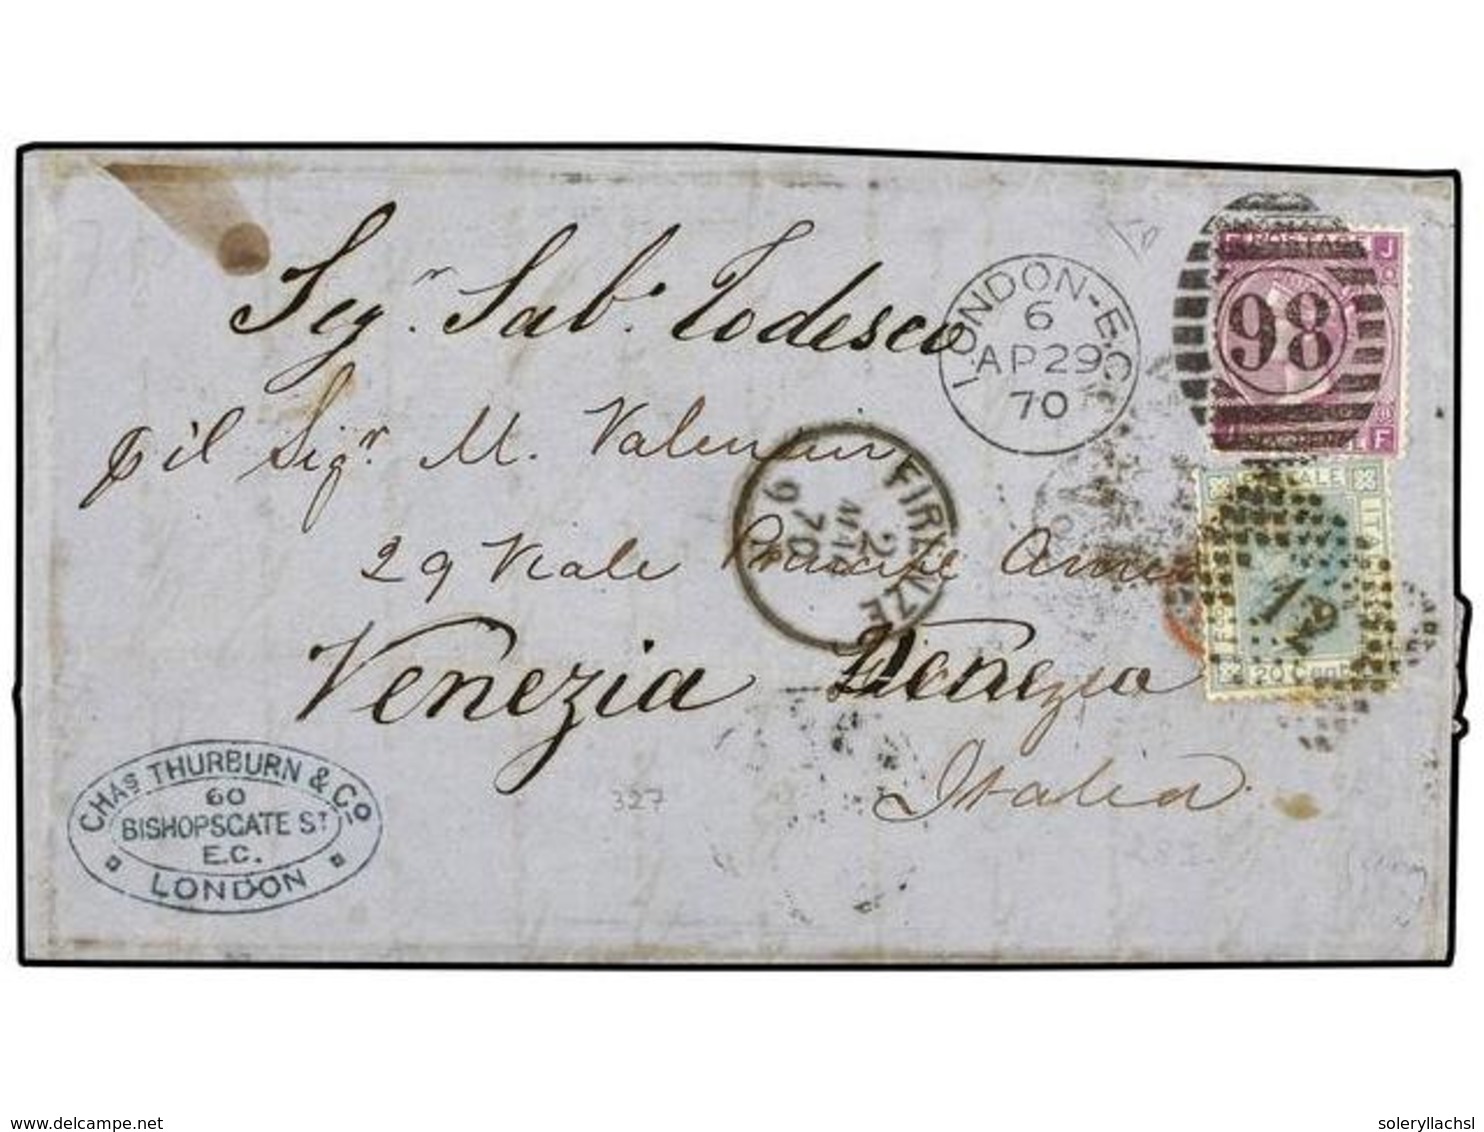 Sigr. Sabo. Todesco
p il Sigr. M. Valentin
29 Viale Principe Ame
Venezia Venezia
Italia
LONDON-E.C.
6
AP29
70
98
POSTAGE
J
F
FIRENZE
2
MAG
70
9 M
ITALIANE
12
20 Cent
CHAS THURBURN & Co
60
BISHOPSGATE ST
E.C.
LONDON
327
www.delcampe.net
soleryllachsl